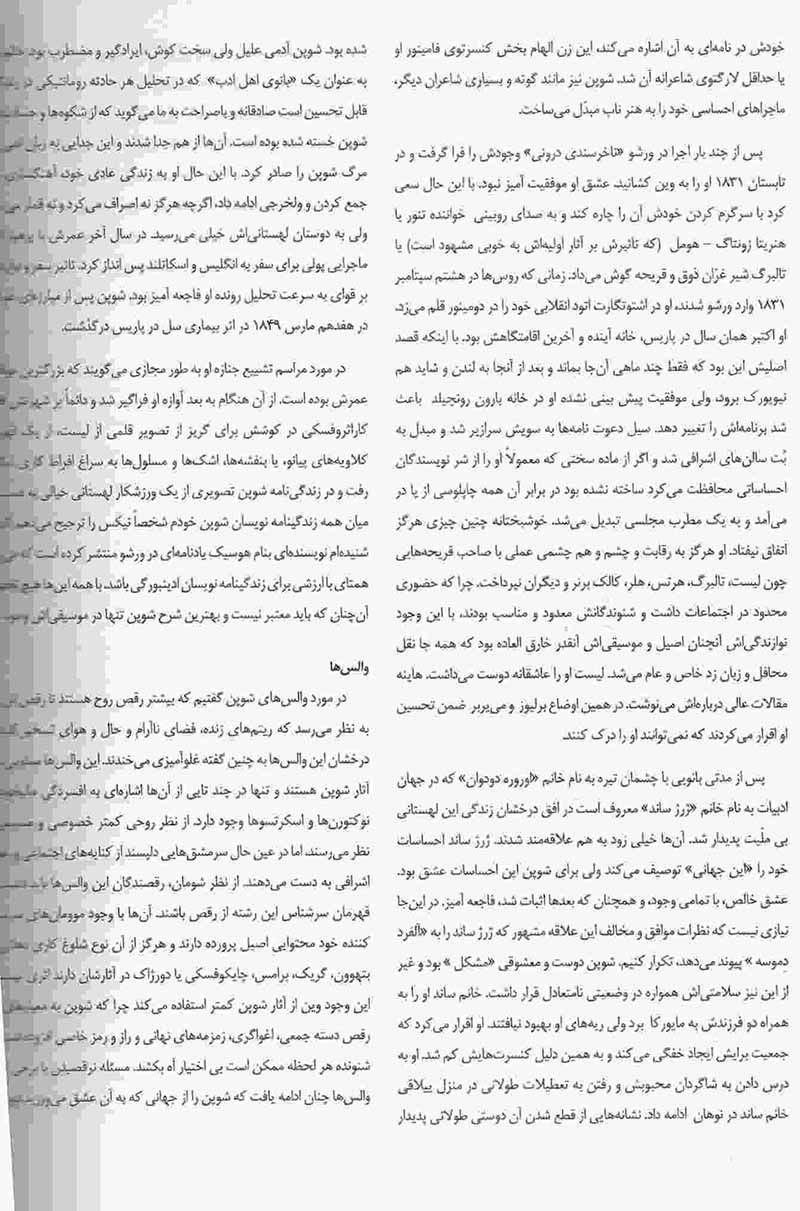 خودش در نامه‌ای به آن اشاره می‌کند، این زن الهام بخش کنسرتوی فامینور او
یا حداقل لارگتوی شاعرانه آن شد. شوپن نیز مانند گوته و بسیاری شاعران دیگر،
ماجراهای احساسی خود را به هنر ناب مبدّل می‌ساخت.
پس از چند بار اجرا در ورشو «ناخرسندی درونی» وجودش را فرا گرفت و در
تابستان ۱۸۳۱ او را به وین کشانید. عشق او موفقیت آمیز نبود. با این حال سعی
کرد با سرگرم کردن خودش آن را چاره کند و به صدای روبینی خواننده تنور یا
هنریتا زونتاگ – هومل (که تاثیرش بر آثار اولیه‌اش به خوبی مشهود است) یا
تالبرگ شیر غرّان ذوق و قریحه گوش می‌داد. زمانی که روس‌ها در هشتم سپتامبر
۱۸۳۱ وارد ورشو شدند، او در اشتوتگارت اتود انقلابی خود را در دومینور قلم می‌زد.
او اکتبر همان سال در پاریس، خانه آینده و آخرین اقامتگاهش بود. با اینکه قصد
اصلیش این بود که فقط چند ماهی آن‌جا بماند و بعد از آنجا به لندن و شاید هم
نیویورک برود، ولی موفقیت پیش بینی نشده او در خانه بارون رونچیلد باعث
شد برنامه‌اش را تغییر دهد. سیل دعوت نامه‌ها به سویش سرازیر شد و مبدل به
بُت سالن‌های اشرافی شد و اگر از ماده سختی که معمولاً او را از شر نویسندگان
احساساتی محافظت می‌کرد ساخته نشده بود در برابر آن همه چاپلوسی از پا در
می‌آمد و به یک مطرب مجلسی تبدیل می‌شد. خوشبختانه چنین چیزی هرگز
اتفاق نیفتاد. او هرگز به رقابت و چشم و هم چشمی عملی با صاحب قریحه‌هایی
چون لیست، تالبرگ، هرتس، هلر، کالک برنر و دیگران نپرداخت. چرا که حضوری
محدود در اجتماعات داشت و شنوندگانش معدود و مناسب بودند، با این وجود
نوازندگی‌اش آنچنان اصیل و موسیقی‌اش آنقدر خارق العاده بود که همه جا نقل
محافل و زبان زد خاص و عام می‌شد. لیست او را عاشقانه دوست می‌داشت. هاینه
مقالات عالی درباره‌اش می‌نوشت. در همین اوضاع برلیوز و می‌یربر ضمن تحسین
او اقرار می‌کردند که نمی‌توانند او را درک کنند.
پس از مدتی بانویی با چشمان تیره به نام خانم «اوروره دودوان» که در جهان
ادبیات به نام خانم «ژرژ ساند» معروف است در افق درخشان زندگی این لهستانی
بی ملّیت پدیدار شد. آن‌ها خیلی زود به هم علاقه‌مند شدند. ژرژ ساند احساسات
خود را «این جهانی» توصیف می‌کند ولی برای شوپن این احساسات عشق بود.
عشق خالص، با تمامی وجود، و همچنان که بعدها اثبات شد، فاجعه آمیز. در این‌جا
نیازی نیست که نظرات موافق و مخالف این علاقه مشهور که ژرژ ساند را به «آلفرد
دموسه» پیوند می‌دهد، تکرار کنیم. شوپن دوست و معشوقی «مشکل» بود و غیر
از این نیز سلامتی‌اش همواره در وضعیتی نامتعادل قرار داشت. خانم ساند او را به
همراه دو فرزندش به مایورکا برد ولی ریه‌های او بهبود نیافتند. او اقرار می‌کرد که
جمعیت برایش ایجاد خفگی می‌کند و به همین دلیل کنسرت‌هایش کم شد. او به
درس دادن به شاگردان محبوبش و رفتن به تعطیلات طولانی در منزل ییلاقی
خانم ساند در نوهان ادامه داد. نشانه‌هایی از قطع شدن آن دوستی طولانی پدیدار
شده بود. شوپن آدمی علیل ولی سخت کوش، ایرادگیر و مضطرب بود.
به عنوان یک «بانوی اهل ادب» که در تحلیل هر حادثه رومانتیکی در
قابل تحسین است صادقانه و باصراحت به ما می‌گوید که از شکوه‌ها و
شوپن خسته شده بوده است. آن‌ها از هم جدا شدند و این جدایی به
مرگ شوپن را صادر کرد. با این حال او به زندگی عادی خود، آهنگسازی،
جمع کردن و ولخرجی ادامه داد، اگرچه هرگز نه اصراف می‌کرد و نه قمار
ولی به دوستان لهستانی‌اش خیلی می‌رسید. در سال آخر عمرش با
ماجرایی پولی برای سفر به انگلیس و اسکاتلند پس انداز کرد. تاثیر سفر و
بر قوای به سرعت تحلیل رونده او فاجعه آمیز بود. شوپن پس از مبارزه‌ای
در هفدهم مارس ۱۸۴۹ در اثر بیماری سل در پاریس درگذشت.
در مورد مراسم تشییع جنازه او به طور مجازی می‌گویند که بزرگترین
عمرش بوده است. از آن هنگام به بعد آوازه او فراگیر شد و دائماً بر شهرتش
کاراثروفسکی در کوشش برای گریز از تصویر قلمی از لیست، از یک
کلاویه‌های پیانو، یا بنفشه‌ها، اشک‌ها و مسلول‌ها به سراغ افراط کاری
رفت و در زندگی‌نامه شوپن تصویری از یک ورزشکار لهستانی خیالی به
میان همه زندگینامه نویسان شوپن خودم شخصاً نیکس را ترجیح می‌دهم
شنیده‌ام نویسنده‌ای بنام هوسیک یادنامه‌ای در ورشو منتشر کرده است که
همتای با ارزشی برای زندگینامه نویسان ادینبورگی باشد. با همه این‌ها هیچ
آن‌چنان که باید معتبر نیست و بهترین شرح شوپن تنها در موسیقی‌اش
والس‌ها
در مورد والس‌های شوپن گفتیم که بیشتر رقص روح هستند تا رقص
به نظر می‌رسد که ریتم‌های زنده، فضای ناآرام و حال و هوای
درخشان این والس‌ها به چنین گفته غلوآمیزی می‌خندند. این والس‌ها
آثار شوپن هستند و تنها در چند تایی از آن‌ها اشاره‌ای به افسردگی
نوکتورن‌ها و اسکرتسوها وجود دارد. از نظر روحی کمتر خصوصی و
نظر می‌رسند، اما در عین حال سرمشق‌هایی دلپسند از کنایه‌های اجتماعی و
اشرافی به دست می‌دهند. از نظر شومان، رقصندگان این والس‌ها باید
قهرمان سرشناس این رشته از رقص باشند. آن‌ها با وجود موومان‌های
کننده خود محتوایی اصیل پرورده دارند و هرگز از آن نوع شلوغ کاری
بتهوون، گریک، برامس، چایکوفسکی یا دورژاک در آثارشان دارند اثری
این وجود وین از آثار شوپن کمتر استفاده می‌کند چرا که شوپن به
رقص دسته جمعی، اغواگری، زمزمه‌های نهانی و راز و رمز خاصی
شنونده هر لحظه ممکن است بی اختیار آه بکشد. مسئله نرقصیدن با برخی
والس‌ها چنان ادامه یافت که شوپن را از جهانی که به آن عشق